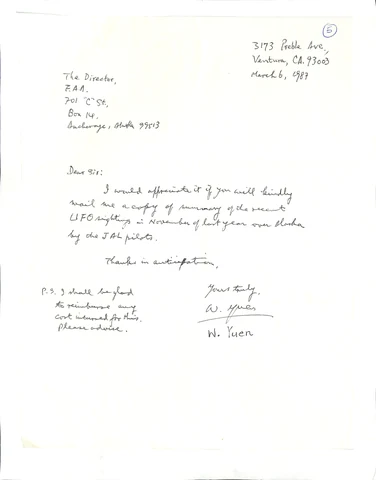 5
3173 Preble Ave.,
Ventura, CA. 93003
March 6, 1987
The Director,
F.A.A.
701 "C" St.
Box 14.
Anchorage, Alaska 99513
Dear Sir:
I would appreciate it if you will kindly
mail me a copy of summary of the recent
UFO sightings in November of last year over Alaska
by the JAL pilots.
Thanks in anticipation.
P.S. I shall be glad
to reimburse any
cost incurred for this.
Please advise.
Yours truly,
W. Yuen
W. Yuen